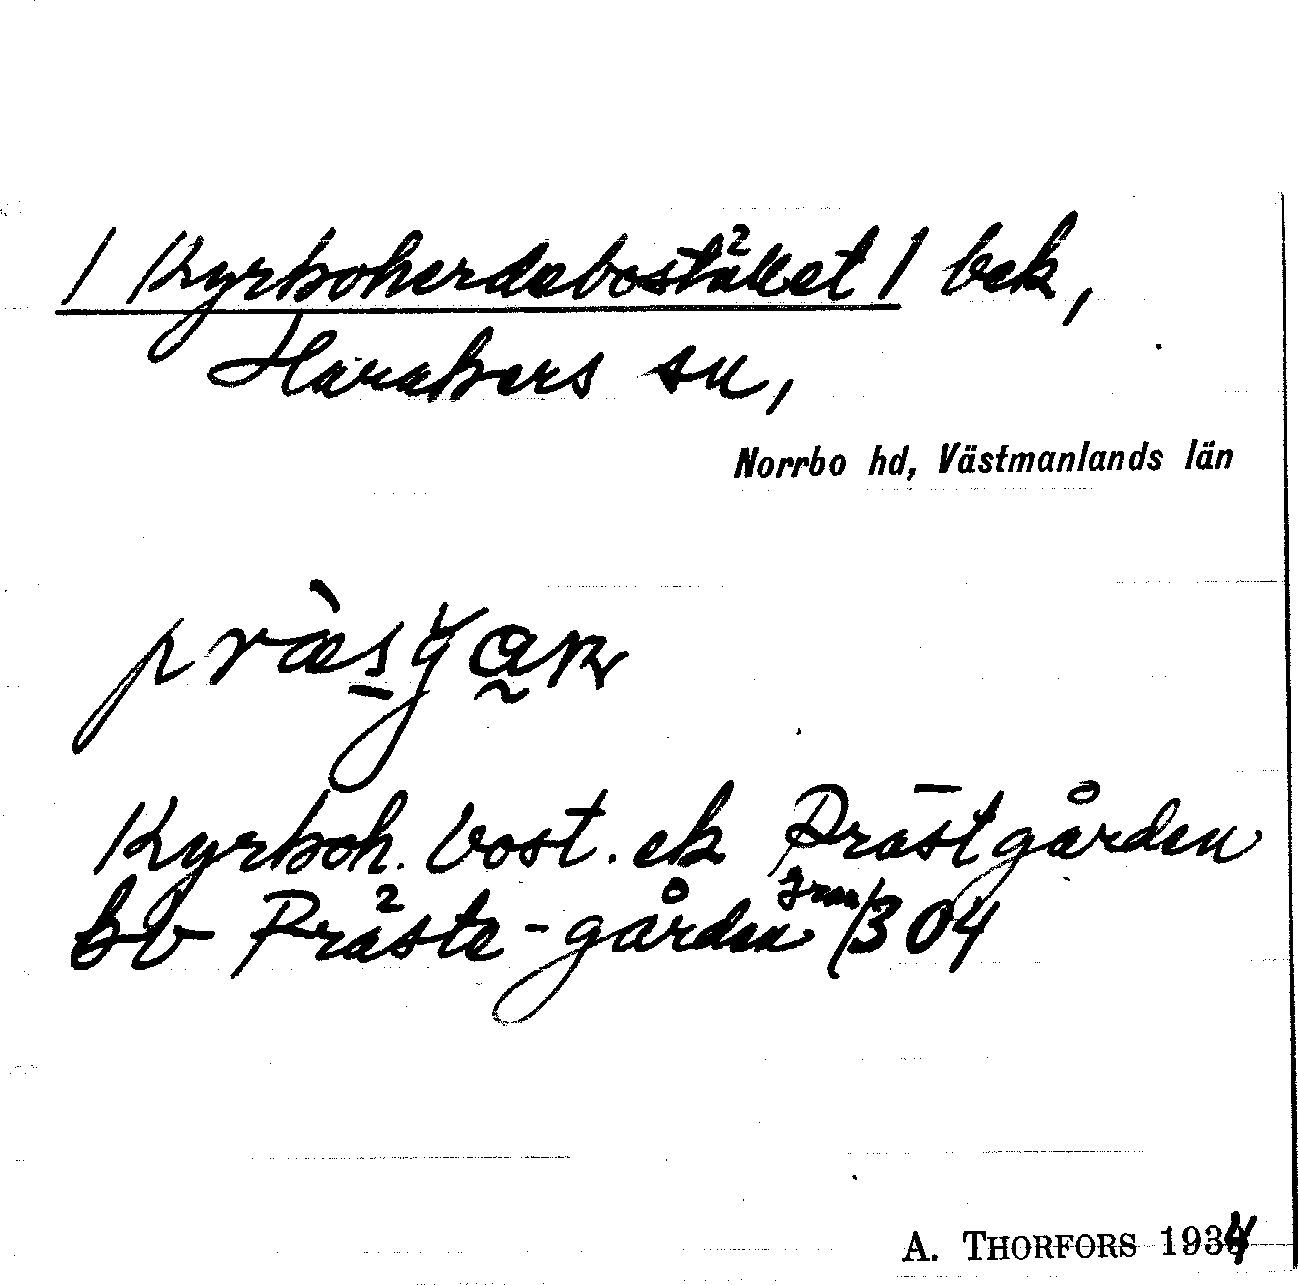 /Kyrkoherdebostället/ bek,
Haraker s sn,
Norrbo hd, Västmanlands län
præ̀sgaɳ
Kyrkoh. bost. ek Prästgården
bv Präste-gården Jrnr 1304
A. THORFORS 1934